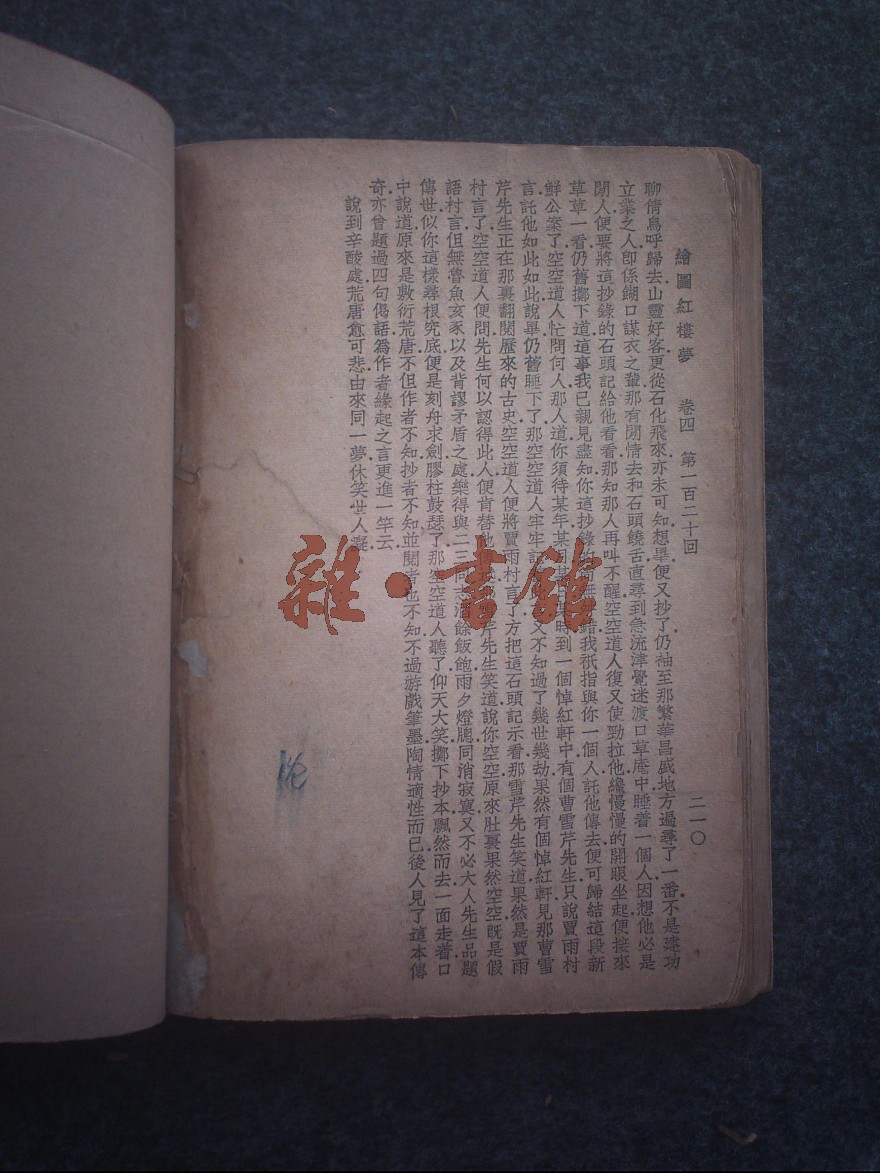 繪圖紅樓夢 卷四 第一百二十回 二一〇
聊倩鳥呼歸去山靈好客更從石化飛來亦未可知想畢便又抄了仍袖至那繁華昌盛地方遍尋了一番不是建功
立業之人卽係餬口謀衣之輩那有閒情去和石頭饒舌直尋到急流津覺迷渡口草庵中睡着一個人因想他必是
閒人便要將這抄錄的石頭記給他看看那知那人再叫不醒空空道人復又使勁拉他纔慢慢的開眼坐起便接來
草草一看仍舊擲下道這事我已親見盡知你這抄錄的尚無舛錯我祇指與你一個人託他傳去便可歸結這段新
鮮公案了空空道人忙問何人那人道你須待某年某月某日某時到一個悼紅軒中有個曹雪芹先生只說賈雨村
言託他如此如此說畢仍舊睡下了那空空道人牢牢記 又不知過了幾世幾劫果然有個悼紅軒見那曹雪
芹先生正在那裏翻閱歷來的古史空空道人便將賈雨村言了方把這石頭記示看那雪芹先生笑道果然是賈雨
村言了空空道人便問先生何以認得此人便肯替他 芹先生笑道說你空空原來肚裏果然空空旣是假
語村言但無魯魚亥豕以及背謬矛盾之處樂得與二三同志酒餘飯飽雨夕燈牕同消寂寞又不必大人先生品題
傳世似你這樣尋根究底便是刻舟求劍膠柱鼓瑟了那空空道人聽了仰天大笑擲下抄本飄然而去一面走着口
中說道原來是敷衍荒唐不但作者不知抄者不知並閱者也不知不過游戲筆墨陶情適性而已後人見了這本傳
奇亦曾題過四句偈語爲作者緣起之言更進一竿云
說到辛酸處荒唐愈可悲由來同一夢休笑世人癡
雜·書館